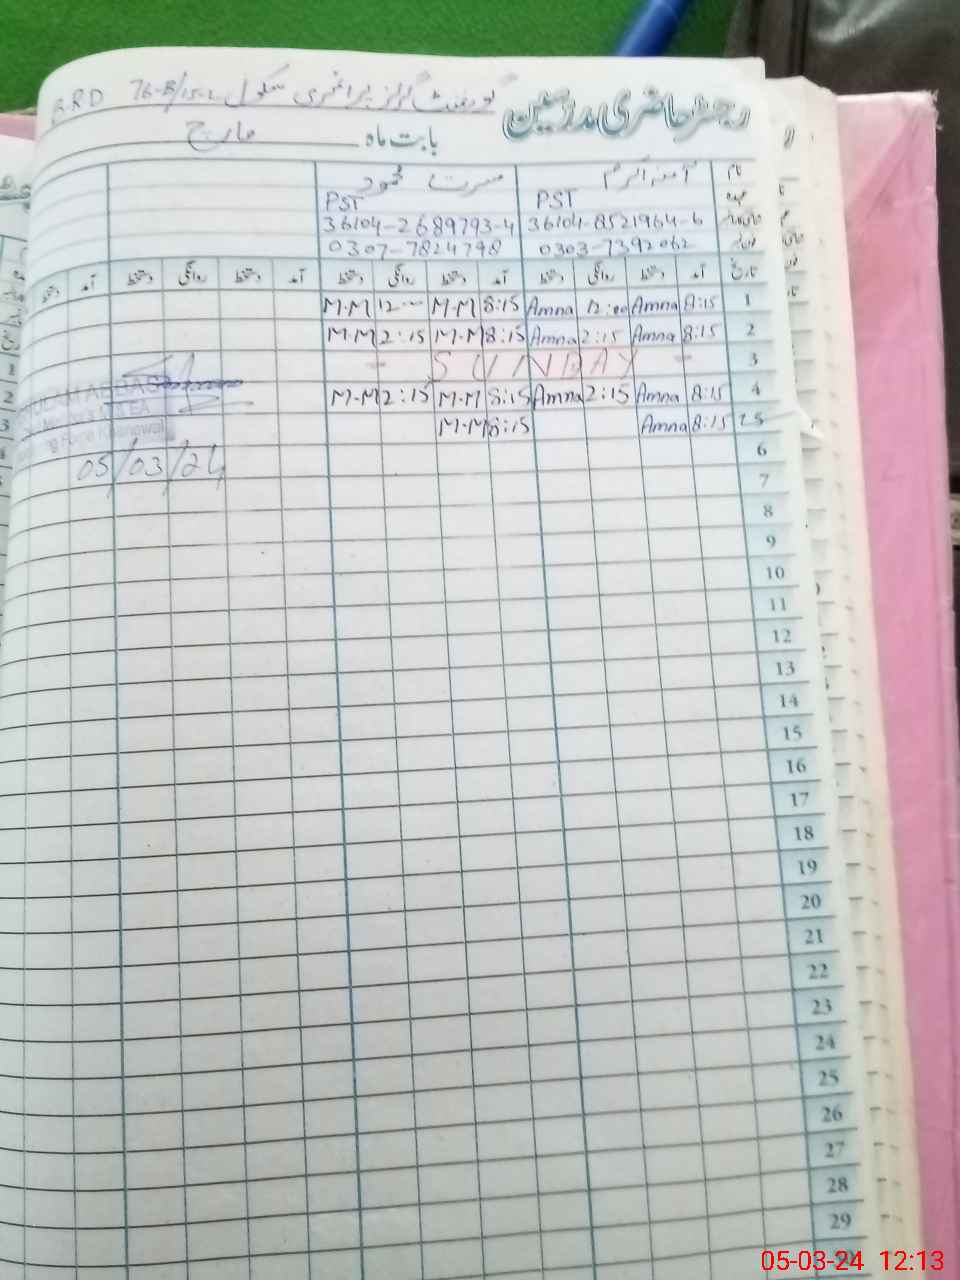 رجسٹر حاضری مدرسین گورنمنٹ گرلز پرائمری سکول 76-B/15-L B.R.D
بابت ماہ مارچ
نام آمنہ اکرم مسرت محمود
عہدہ PST PST
36104-8521964-6 36104-2689793-4
0303-7392062 0307-7824798
تاریخ آمد دستخط روانگی دستخط آمد دستخط روانگی دستخط آمد دستخط روانگی دستخط آمد دستخط
1 8:15 Amna 12:00 Amna 8:15 M-M 12 M-M
2 8:15 Amna 2:15 Amna 8:15 M-M 2:15 M-M
3 - SUNDAY -
4 8:15 Amna 2:15 Amna 8:15 M-M 2:15 M-M
5 8:15 Amna 8:15 M-M
6
7
8
9
10
11
12
13
14
15
16
17
18
19
20
21
22
23
24
25
26
27
28
29
ABBAS
AEA
05/03/24
05-03-24 12:13